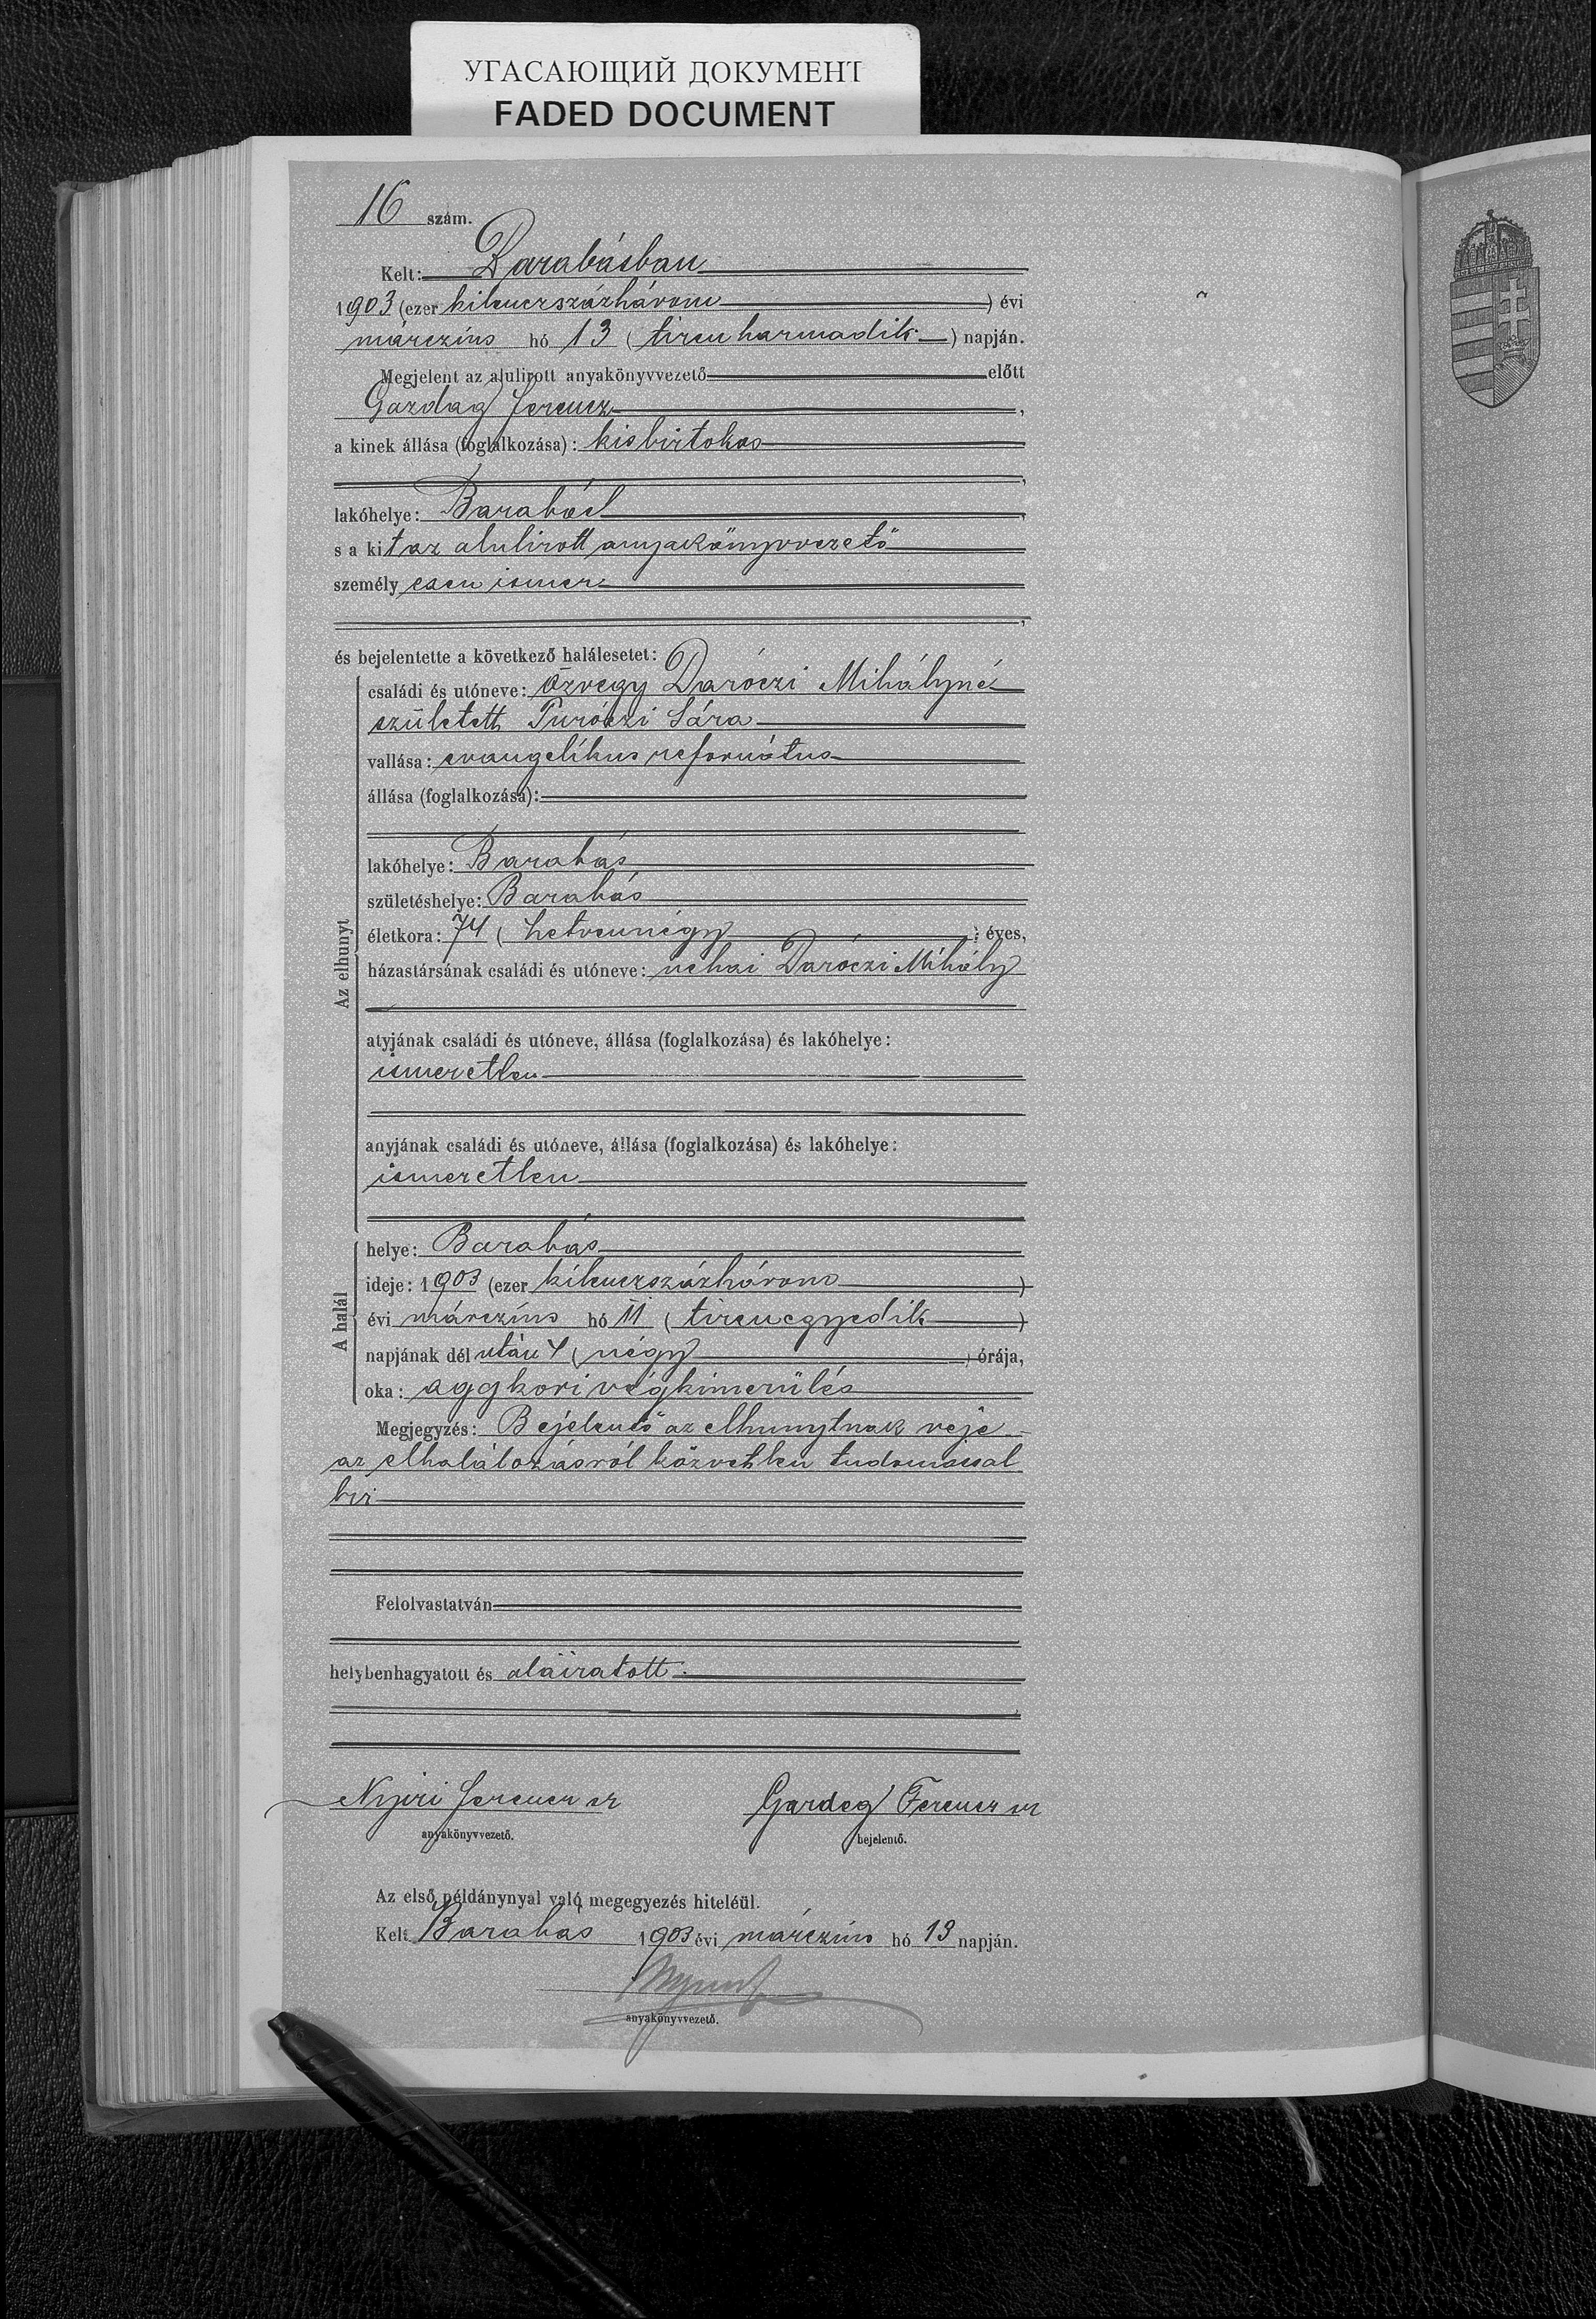 УГАСАЮЩИЙ ДОКУМЕНТ
FADED DOCUMENT
16 szám.
Kelt: Barabásban
1903 (ezer kilenczszázhárom) évi
márczius hó 13 (tizenharmadik) napján.
Megjelent az alulirott anyakönyvvezető előtt
Gazdag Ferencz,
a kinek állása (foglalkozása): kisbirtokos
,
lakóhelye: Barabás,
s a kit az alulirott anyakönyvvezető
személyesen ismer
,
és bejelentette a következő halálesetet:
Az elhunyt
családi és utóneve: özvegy Daróczi Mihályné
született Turóczi Sára
vallása: evangelikus református
állása (foglalkozása):
lakóhelye: Barabás
születéshelye: Barabás
életkora: 74 (hetvennégy) éves,
házastársának családi és utóneve: néhai Daróczi Mihály
atyjának családi és utóneve, állása (foglalkozása) és lakóhelye:
ismeretlen
anyjának családi és utóneve, állása (foglalkozása) és lakóhelye:
ismeretlen
A halál
helye: Barabás
ideje: 1903 (ezer kilenczszázhárom)
évi márczius hó 11 (tizenegyedik)
napjának dél után 4 (négy) órája,
oka: aggkori végkimerülés
Megjegyzés: Bejelentő az elhunytnak veje
az elhalálozásról közvetlen tudomással
bir
Felolvastatván
helybenhagyatott és aláiratott.
Nyiri Ferencz sk
Gazdag Ferencz sk
anyakönyvvezető.
bejelentő.
Az első példánynyal való megegyezés hiteléül.
Kelt Barabás 1903 évi márczius hó 13 napján.
anyakönyvvezető.